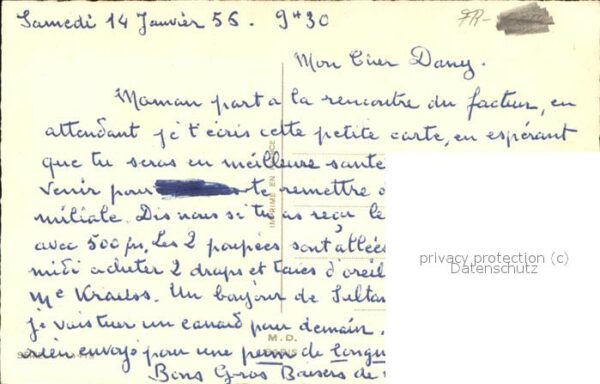 Samedi 14 Janvier 56. 9H30
FR-
Mon Cher Dany.
Maman part a la rencontre du facteur, en
attendant je t'écris cette petite carte, en espérant
que tu seras en meilleure santé
venir pour te remettre
miliale. Dis nous si tu as reçu le
avec 500 frs. Les 2 poupées sont allées
midi acheter 2 draps et taies d'oreil
Me Krauss. Un bonjour de Sultan
je vais tuer un canard pour demain.
envoyé pour une perm de longu
Bons Gros Baisers de
IMPRIMÉ EN FRANCE
M.D.
PARIS
privacy protection (c)
Datenschutz